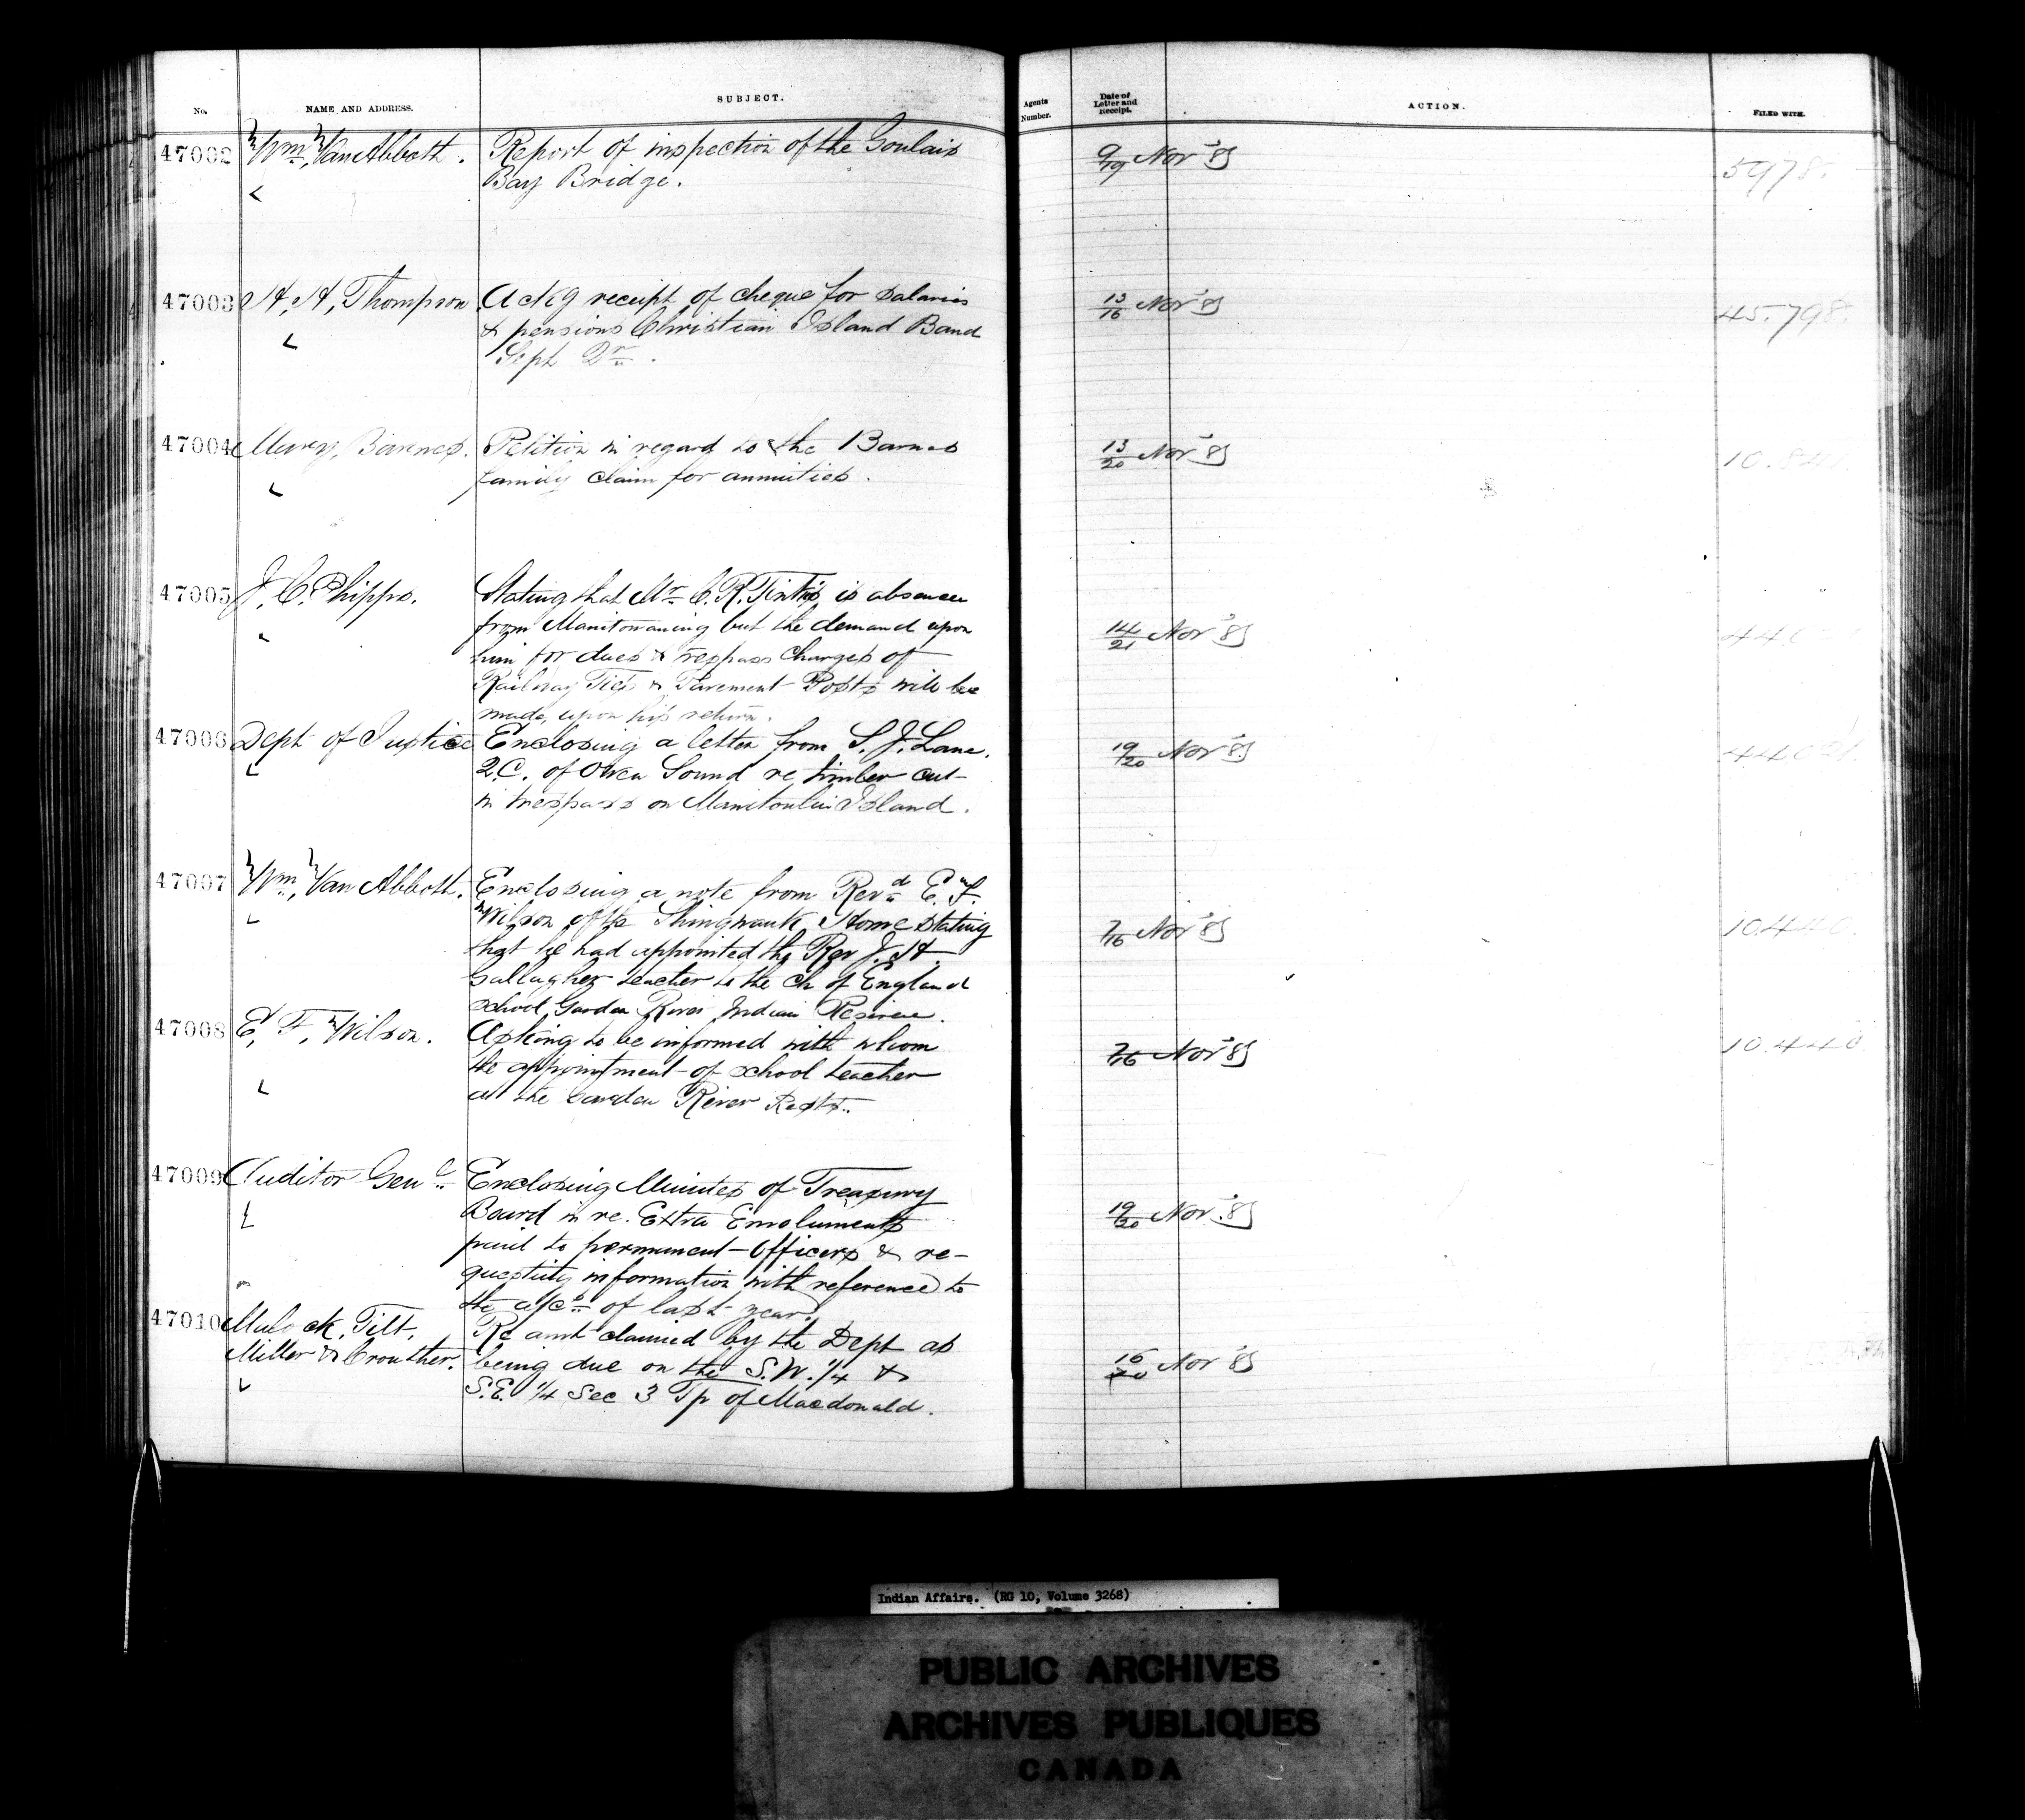 No.
NAME AND ADDRESS.
SUBJECT.
Agents
Number.
Date of
Letter and
Receipt.
ACTION.
FILED WITH.
47002
Wm. Van Abbott.
Report of inspection of the Goulais
Bay Bridge.
9/19 Nov '85
5978.
47003
H, H, Thompson
Ackg receipt of cheque for salaries
& pensions Christian Island Band
Sept Qr.
13/16 Nov '85
45.798.
47004
Mary, Barnes.
Petition in regard to the Barnes
family claim for annuities.
13/20 Nov '85
47005
J. C. Phipps.
Stating that Mr C. R. is absence
from Manitowaning but the demand upon
him for dues & trespass charges of
Railway Ties & Pavement Posts will be
made, upon his return.
14/21 Nov '85
47006
Dept of Justice
Enclosing a letter from S. J. Lane.
Q.C. of Owen Sound re timber cut
in trespass on Manitoulin Island.
19/20 Nov '85
47007
Wm. Van Abbott.
Enclosing a note from Revd E. F.
Wilson of the Shingwauk Home stating
that he had appointed the Rev J. H.
Gallagher teacher to the Ch of England
school Garden River Indian Reserve.
7/16 Nov '85
10.440.
47008
E, F, Wilson.
Asking to be informed with whom
the appointment of school teacher
at the Garden River Rests.
7/16 Nov '85
10.440
47009
Auditor Genl
Enclosing Minutes of Treasury
Board in re. Extra Emoluments
paid to permanent officers & re-
questing information with reference to
the a/cs of last year.
19/20 Nov. '85
47010
Mulock, Tilt,
Miller & Crowther.
Re amt claimed by the Dept as
being due on the S.W. 1/4 &
S.E. 1/4 Sec 3 Tp of Macdonald.
16/20 Nov '85
Indian Affairs. (RG 10, Volume 3268)
PUBLIC ARCHIVES
ARCHIVES PUBLIQUES
CANADA